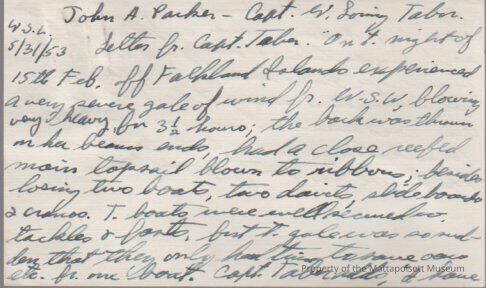 John A. Parker - Capt. W. Loring Taber.
W.S.L.
5/31/53
Letter fr. Capt. Taber. "On t. night of
15th Feb. off Falkland Islands experienced
a very severe gale of wind fr. W.S.W, blowing
very heavy for 3½ hours; the bark was thrown
on her beams ends, had a close reefed
main topsail blown to ribbons; besides
losing two boats, two davits, slideboards
& cranes. T. boats were well secured w.
tackles & fasts, but t. gale was so sud-
den that they only had time to save oars
etc. fr. one boat. Capt. Taber
Property of the Mattapoisett Museum